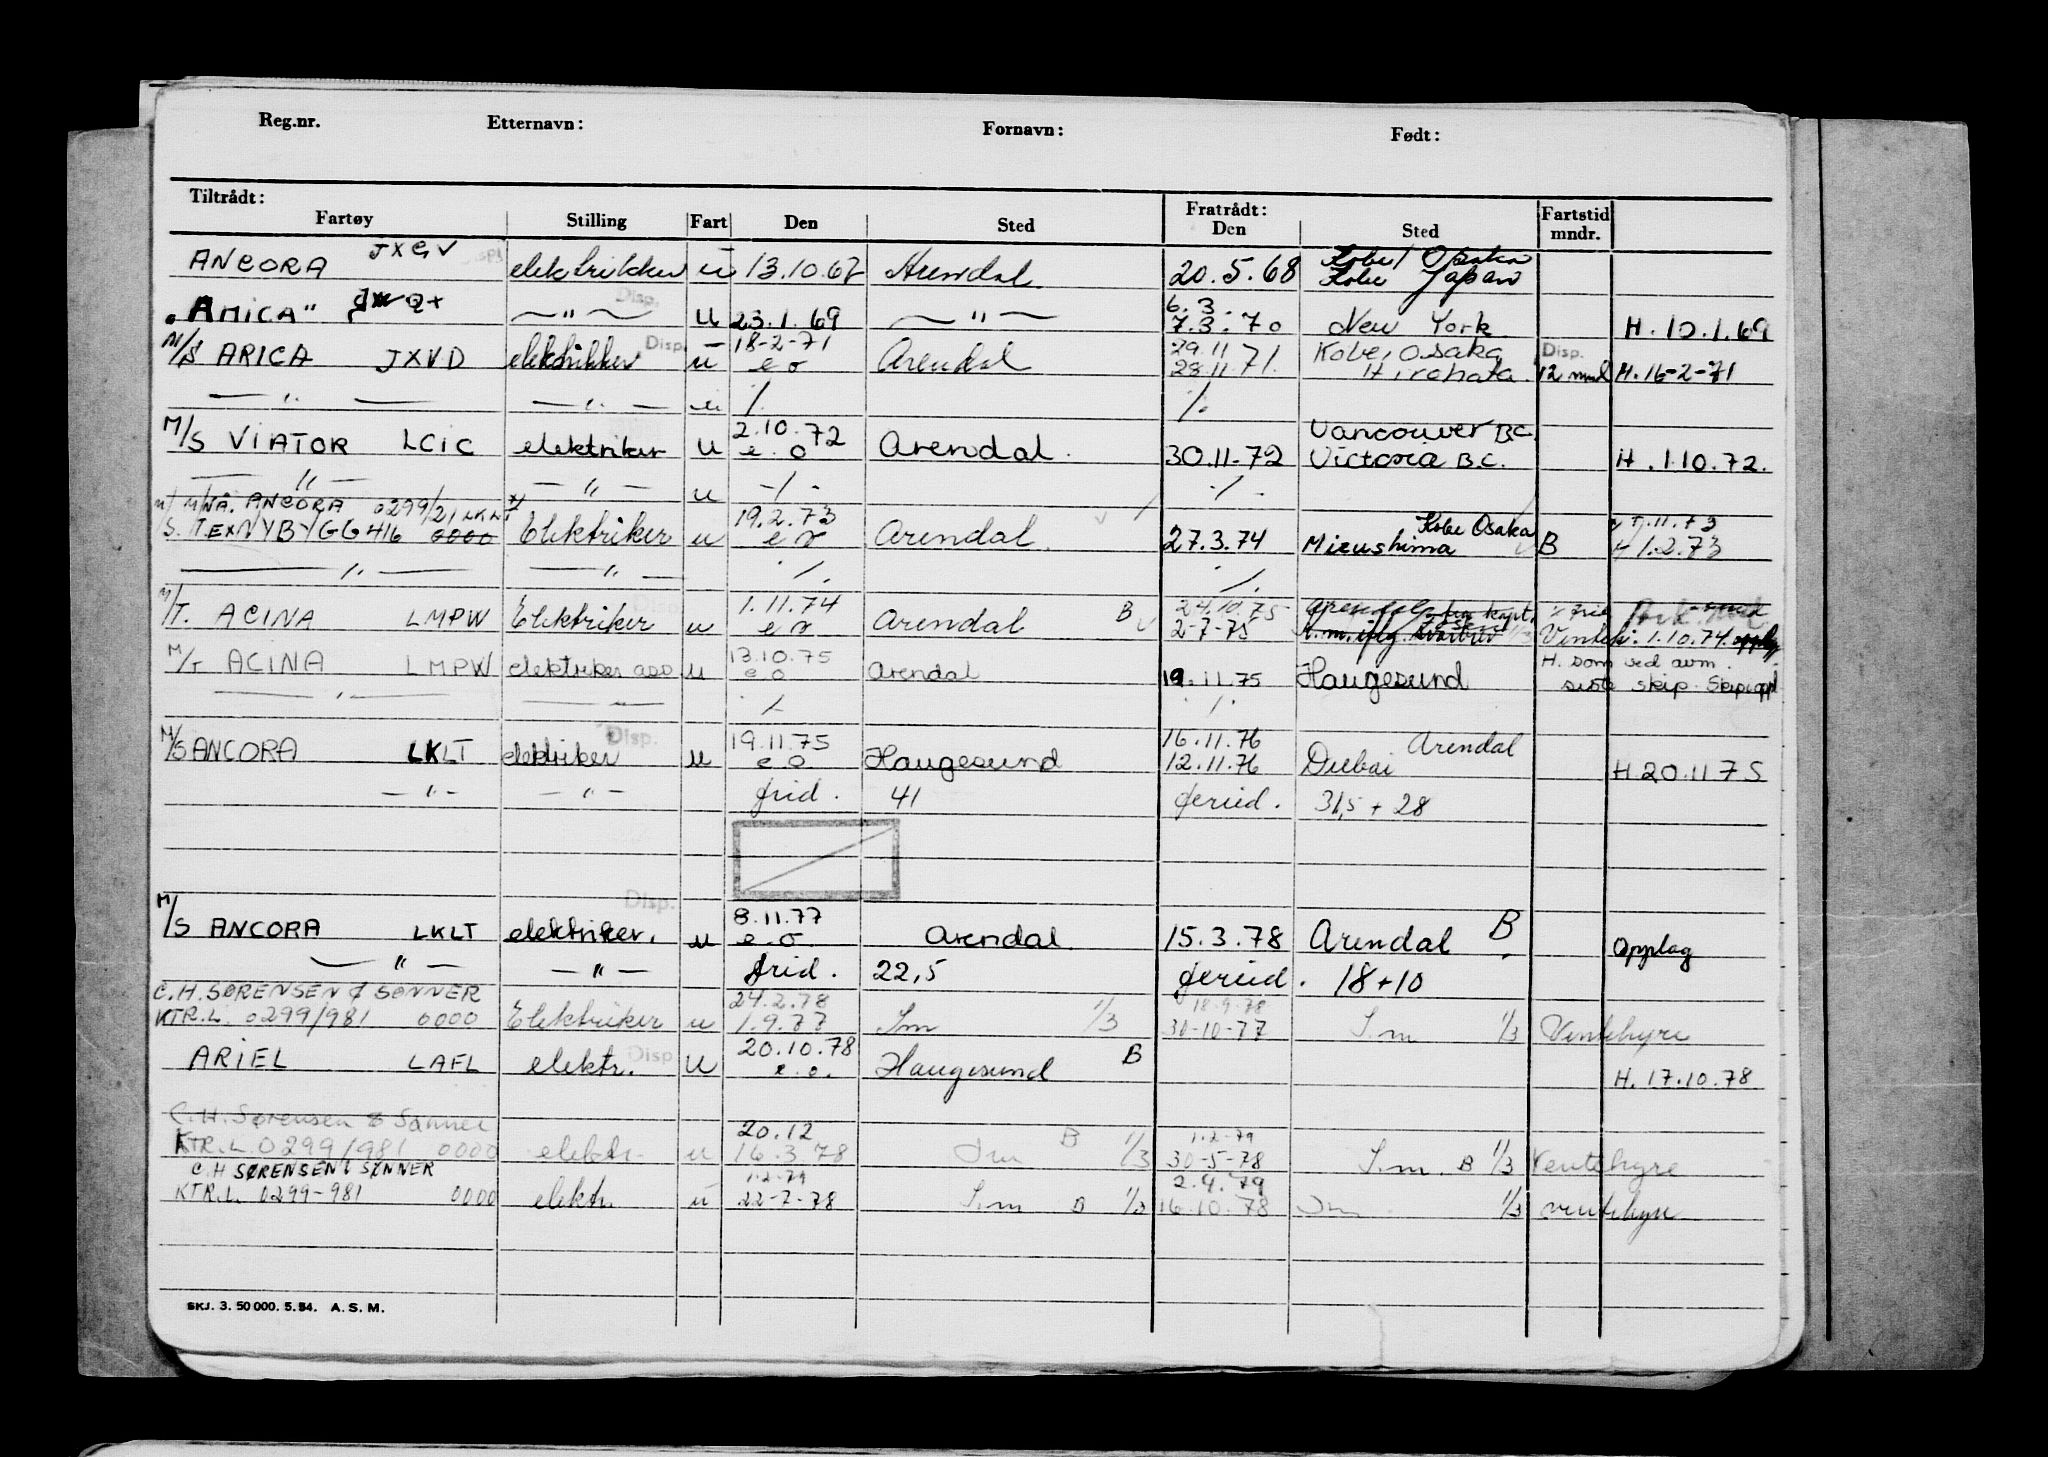 Reg.nr. Etternavn: Fornavn: Født:
Tiltrådt: Fratrådt: Fartstid
Fartøy Stilling Fart Den Sted Den Sted mndr.
ANCORA JXGV elektrikker u 13.10.67 Arendal 20.5.68 Kobe/Osaka
Kobe Japan
Disp.
"AMICA" — " — u 23.1.69 — " — 6.3.
7.3.70 New York H. 10.1.69
M/S ARICA JXVD elektrikker Disp. u 18-2-71
e o Arendal 29.11
28.11.71. Kobe, Osaka
Hirohata Disp.
12 mnd H. 16-2-71
— " — — " — u /. /.
M/S VIATOR LCIC elektriker u 2.10.72
e. o Arendal. 30.11-72 Vancouver B.C.
Victoria B.C. H. 1.10.72.
— " — — " — u -/. ./.
ANCORA 0299/21 LKLT
NYBYGG 416 0000 Elektriker u 19.2.73
e o Arendal. 27.3.74 Kobe Osaka
Mizushima B 11.73
H 1.2.73
— " — — " — ./. ./.
M/T. ACINA LMPW Elektriker Disp. u 1.11.74
e o Arendal B 24.10.75
2-7-75 Arendal 1/3 Ventehyre 1.10.74
M/T ACINA LMPW elektriker u 13.10.75
e o Arendal 19.11.75 Haugesund H. som ved avm.
siste skip.
— " — — " — /. ./.
M/S ANCORA LKLT elektriker Disp. u 19.11.75
e o. Haugesund 16.11.76
12.11.76 Arendal
Dubai H.20.11 75
— " — — " — frid. 41 feried. 31,5 + 28
Disp.
M/S ANCORA LKLT elektriker. u 8.11.77
e.o. Arendal 15.3.78 Arendal B Opplag
— " — — " — frid. 22,5 feried. 18+10
C.H. SØRENSEN & SØNNER
KTR.L. 0299/981 0000 Elektriker u 24.2.78
1.9.77 I.m 1/3 18-9-78
30-10-77 I.m 1/3 Ventehyre
ARIEL LAFL elektr. Disp u 20.10.78
e.o. Haugesund B H. 17.10.78
C.H. Sørensen & Sønner
KTR.L. 0299/981 0000 elektr. u 20.12
16.3.78 I.m B 1/3 1-2-79
30-5-78 I.m. B 1/3 Ventehyre
C.H SØRENSEN & SØNNER
KTR.L. 0299-981 0000 elektr. u 1.2-79
22-7-78 I.m B 1/3 2.4.79
16.10.78 I.m 1/3 ventehyre
SKJ. 3. 50 000. 5. 54. A. S. M.